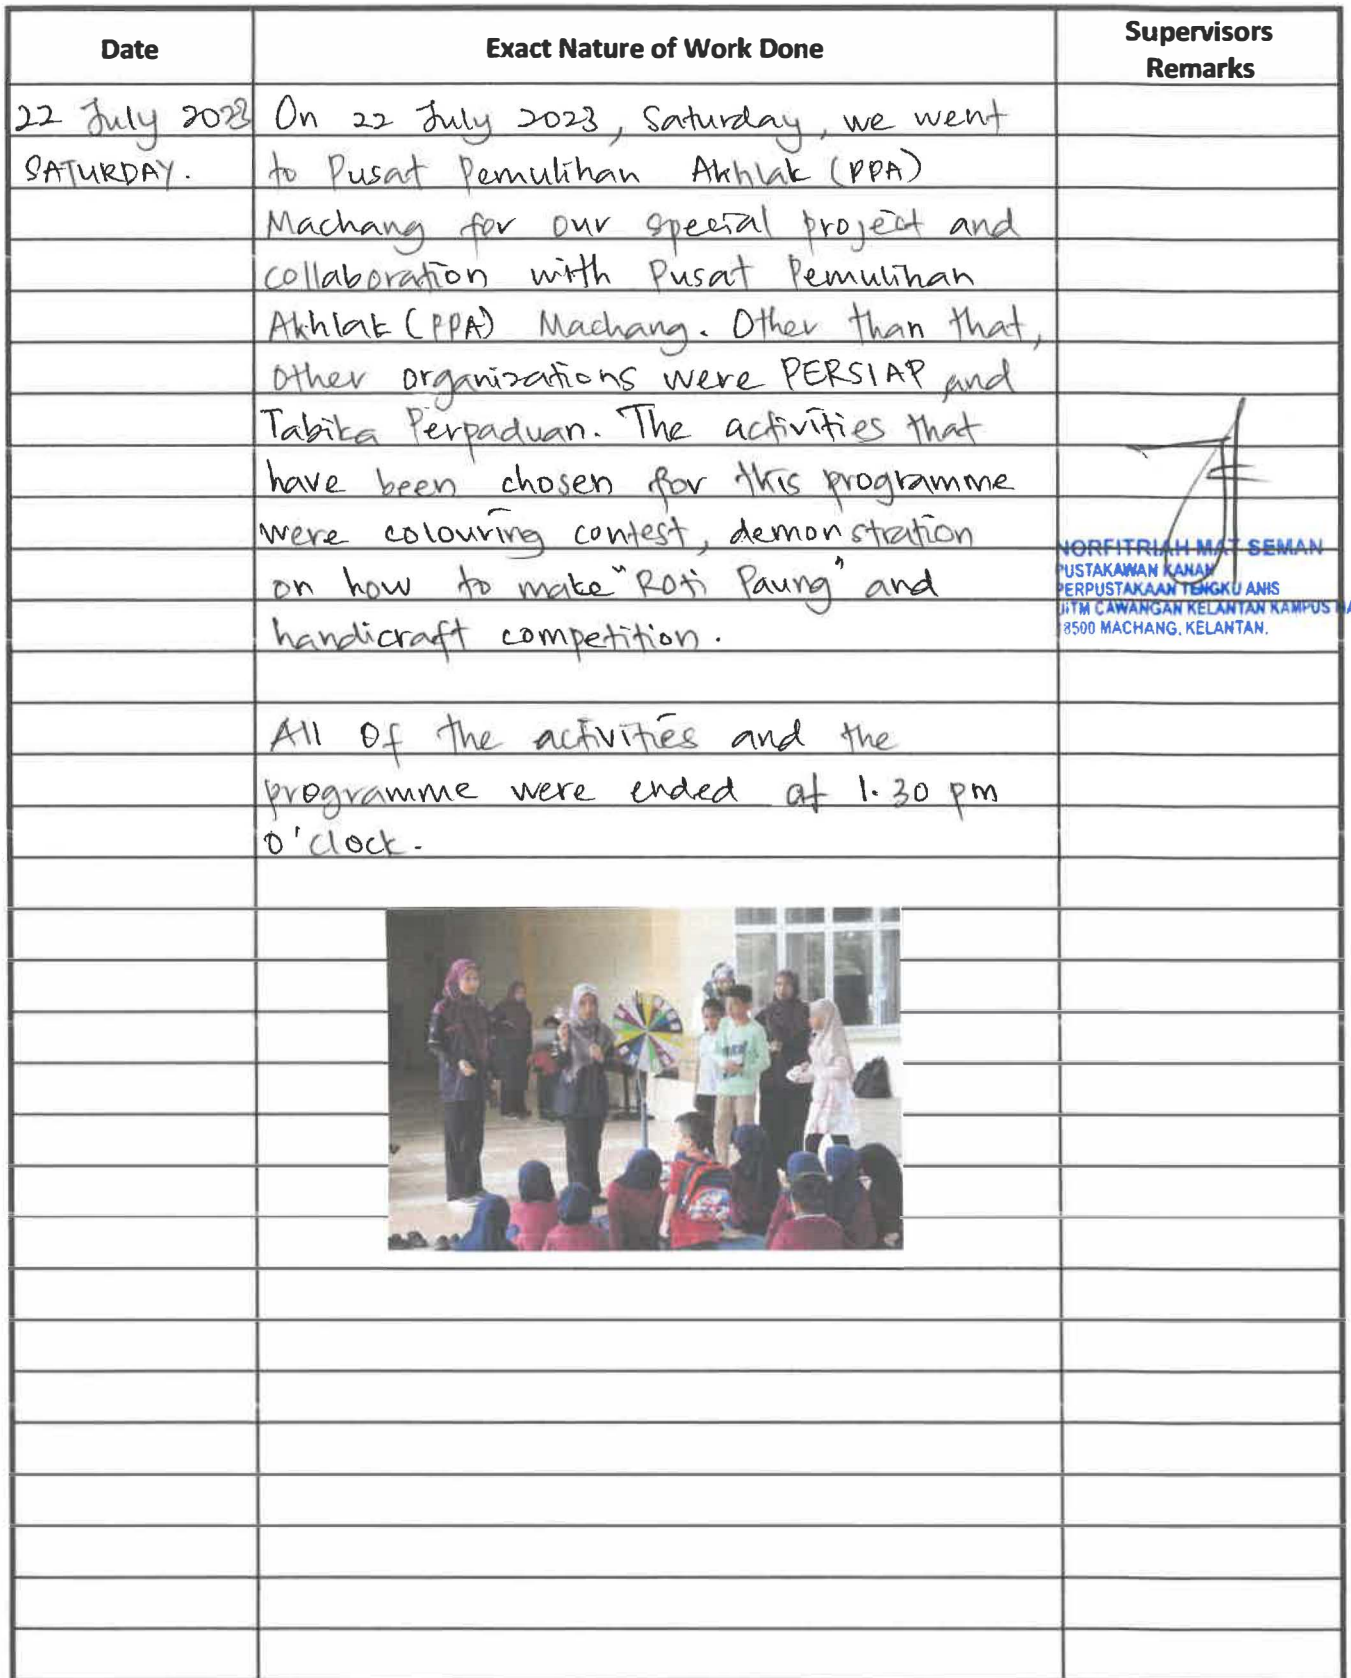 Date
Exact Nature of Work Done
Supervisors
Remarks
22 July 2023
SATURDAY.
On 22 July 2023, Saturday, we went
to Pusat Pemulihan Akhlak (PPA)
Machang for our special project and
collaboration with Pusat Pemulihan
Akhlak (PPA) Machang. Other than that,
other organizations were PERSIAP and
Tabika Perpaduan. The activities that
have been chosen for this programme
were colouring contest, demonstration
on how to make "Roti Paung" and
handicraft competition.
All of the activities and the
programme were ended at 1.30 pm
o'clock.
NORFITRIAH MAT SEMAN
PUSTAKAWAN KANAN
PERPUSTAKAAN TENGKU ANIS
UITM CAWANGAN KELANTAN KAMPUS MA
18500 MACHANG, KELANTAN.